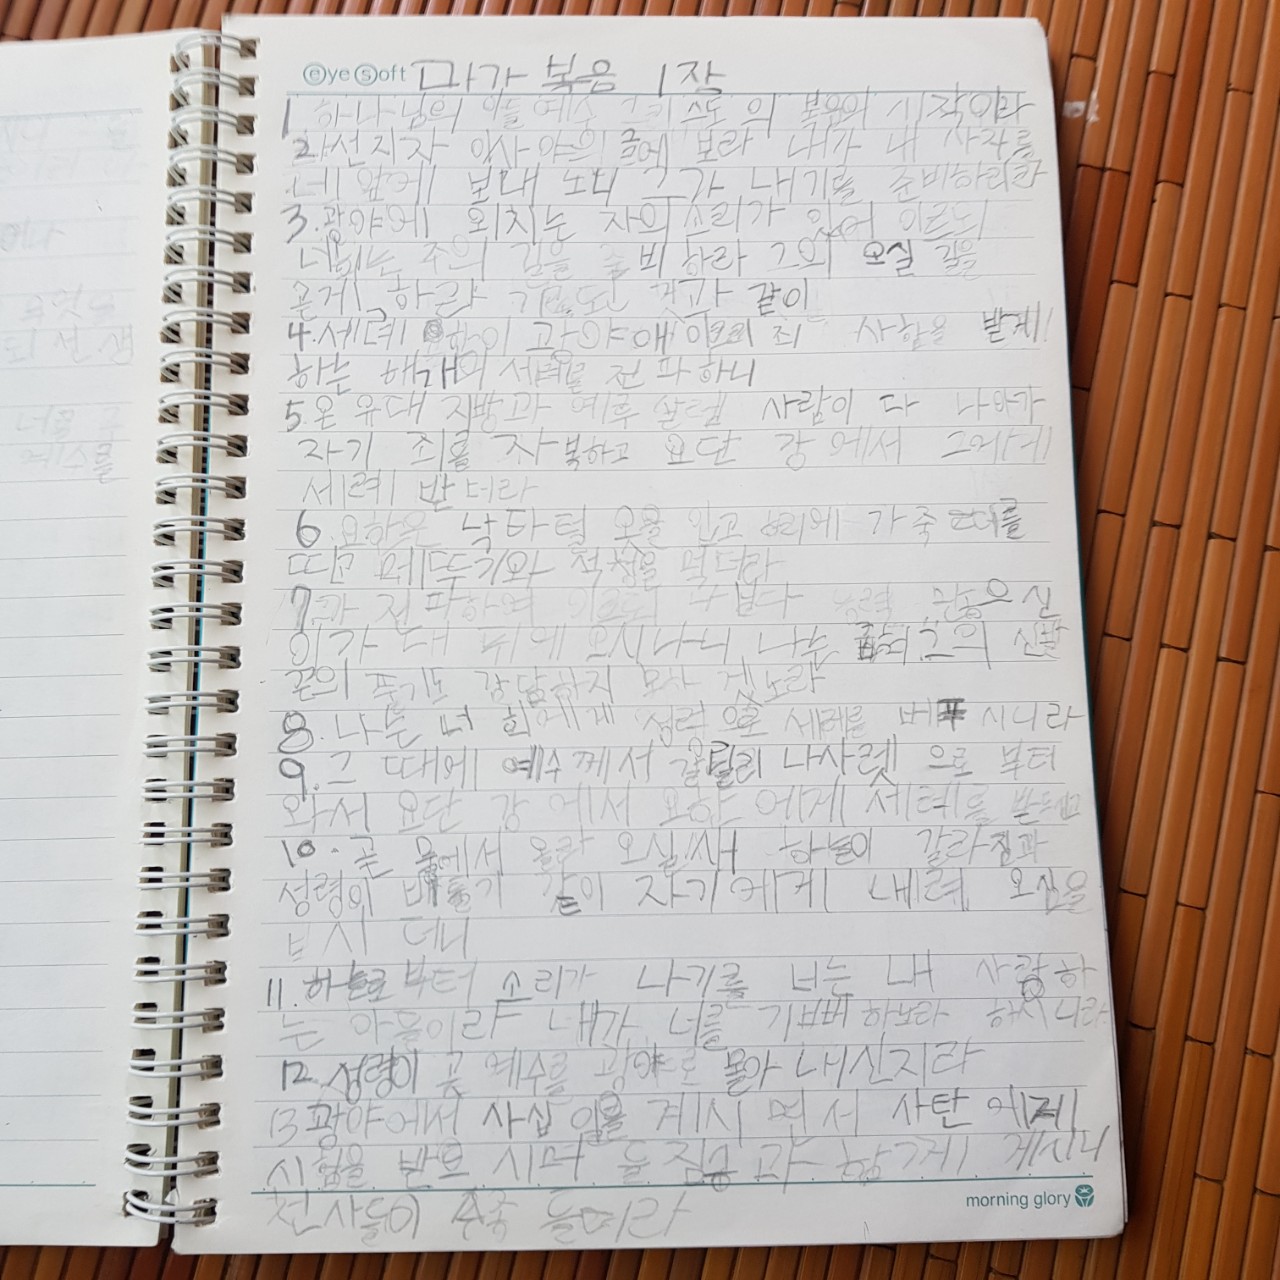 eye soft 마가 복음 1장
1 하나님의 아들 예수 그리스도의 복음의 시작이라
2 선지자 이사야의 글에 보라 내가 내 사자를
네 앞에 보내 노니 그가 네 길을 준비하리라
3. 광야에 외치는 자의 소리가 있어 이르되
너희는 주의 길을 준비 하라 그의 오실 길을
곧게 하라 기록된 것과 같이
4. 세례 요한이 광야에 이르러 죄 사함을 받게
하는 회개의 세례를 전파하니
5. 온 유대 지방과 예루살렘 사람이 다 나아가
자기 죄를 자복하고 요단 강 에서 그에게
세례 받더라
6. 요한은 낙타털 옷을 입고 허리에 가죽 띠를
띠고 메뚜기와 석청을 먹더라
7 그가 전파하여 이르되 나보다 능력 많으신
이가 내 뒤에 오시나니 나는 그의 신발
끈의 풀기도 감당하지 못하 겠노라
8. 나는 너희에게 성령으로 세례를 베푸시니라
9. 그 때에 예수께서 갈릴리 나사렛 으로 부터
와서 요단 강 에서 요한 에게 세례를 받으시고
10. 곧 물에서 올라 오실쌔 하늘이 갈라짐과
성령이 비둘기 같이 자기에게 내려 오심을
보시 더니
11. 하늘로부터 소리가 나기를 너는 내 사랑하
는 아들이라 내가 너를 기뻐하노라 하시니라
12. 성령이 곧 예수를 광야로 몰아 내신지라
13 광야에서 사십 일을 계시면서 사탄 에게
시험을 받으시며 들짐승과 함께 계시니
천사들이 수종 들더라
morning glory